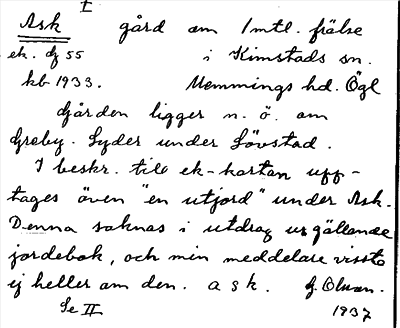 I
Ask gård om 1 mtl. frälse
ek. df 55 i Kimstads sn.
kb 1933. Memmings hd. Ögl
Gården ligger n. ö. om
Greby. Lyder under Lövstad.
I beskr. till ek-kartan upp-
tages även "en utjord" under Ask.
Denna saknas i utdrag ur gällande
jordebok, och min meddelare visste
ej heller om den. a s k. G. Olson.
Se II 1937